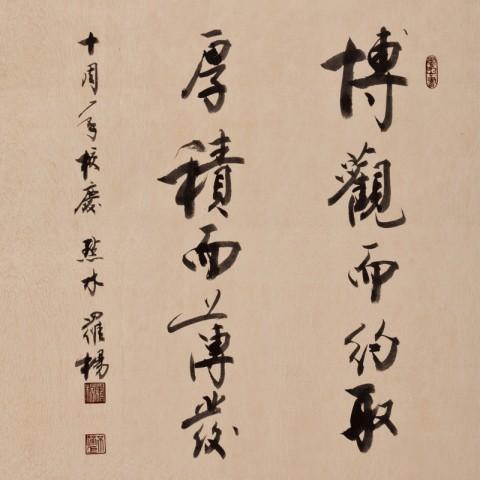 博觀而約取
厚積而薄發
十周年校慶 水 羅楊